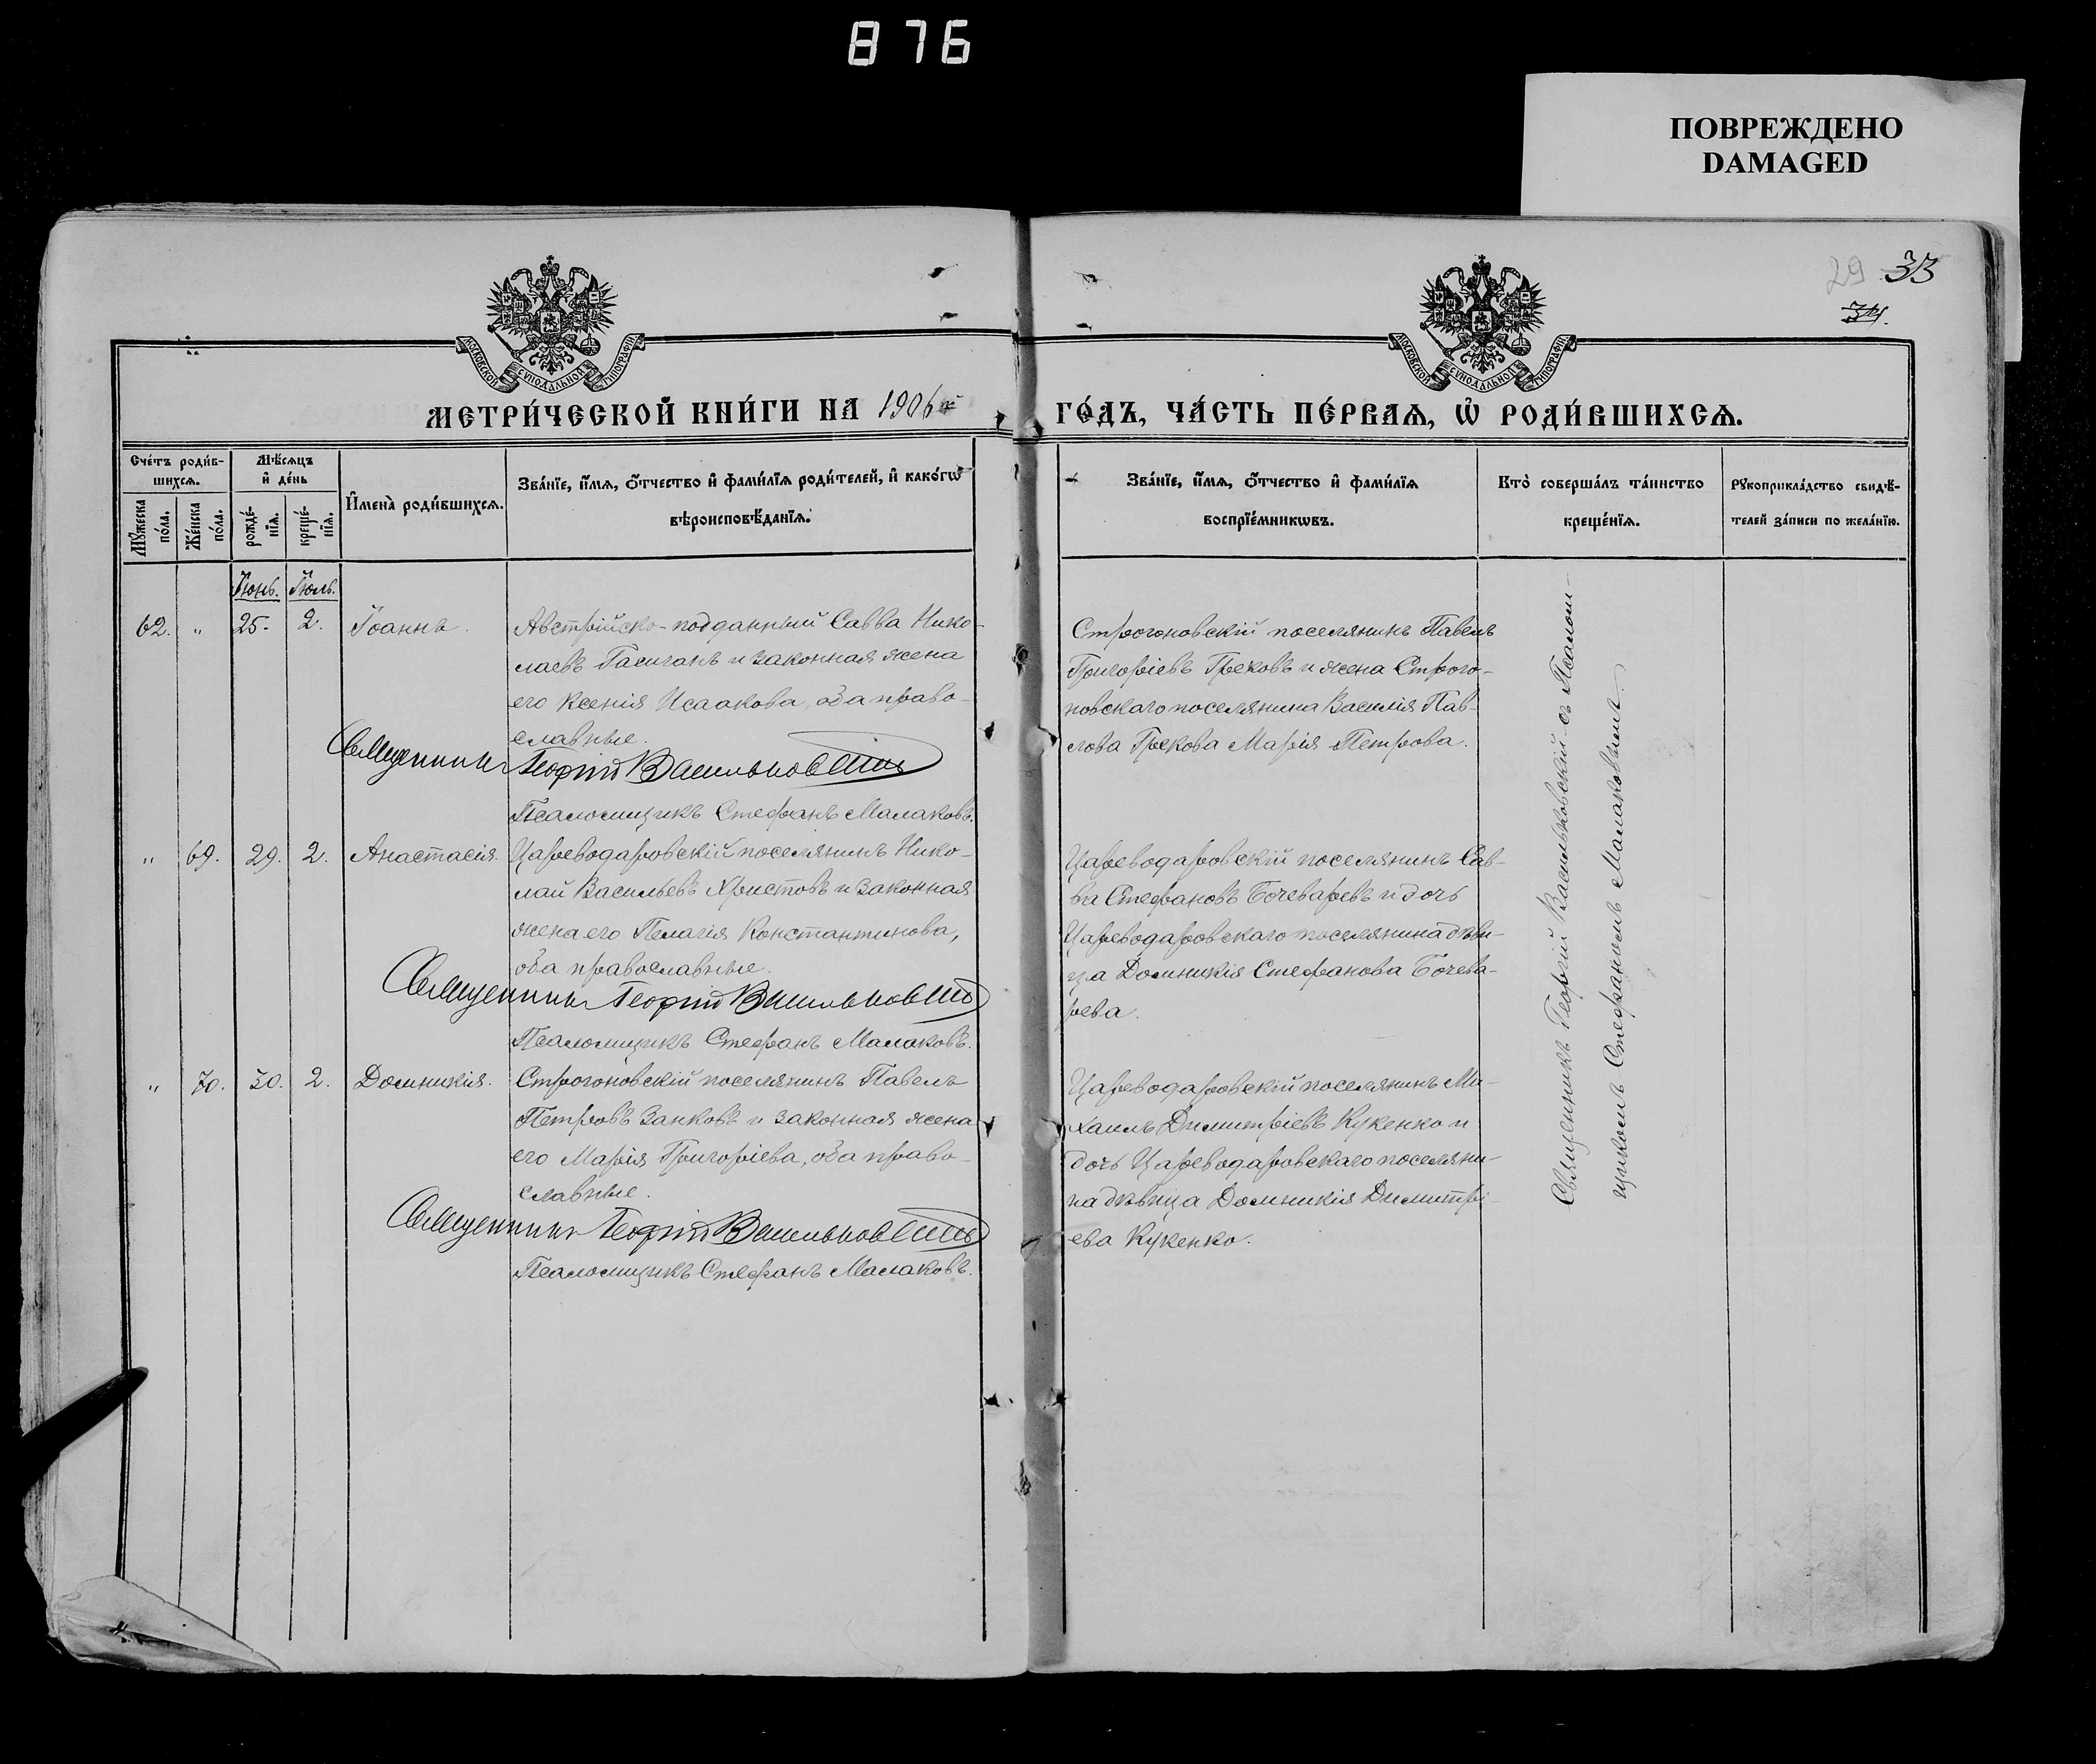 876
ПОВРЕЖДЕНО
DAMAGED
29 33
34.
МОСКОВСКОЙ СѴНОДАЛЬНОЙ ТИПОГРАФІИ
МОСКОВСКОЙ СѴНОДАЛЬНОЙ ТИПОГРАФІИ
МЕТРИ́ЧЕСКОЙ КНИ́ГИ НА 1906й ГО́ДЪ, ЧА́СТЬ ПЕ́РВАѦ, Ѡ҆ РОДИ́ВШИХСѦ.
Сче́тъ роди́в-
шихсѧ.
Мꙋ́жеска
по́ла.
Же́нска
по́ла.
Мѣ́сѧцъ
и҆ де́нь
рожде́-
нїѧ.
креще́-
нїѧ.
И҆мена̀ роди́вшихсѧ.
Зва́нїе, и҆́мѧ, ѻ҆́тчество и҆ фами́лїѧ роди́телей, и҆ како́гѡ
вѣроисповѣ́данїѧ.
Зва́нїе, и҆́мѧ, ѻ҆́тчество и҆ фами́лїѧ
воспрїе́мникѡвъ.
Кто̀ соверша́лъ та́инство
креще́нїѧ.
Рꙋкоприкла́дство свидѣ́-
телей за́писи по жела́нїю.
Іюнь. Іюль.
62. " 25. 2. Іоаннъ.
Австрійско-подданный Савва Нико-
лаевъ Гасиганъ и законная жена
его Ксенія Исаакова, оба право-
славные.
Священникъ Георгій Васильковскій
Псаломщикъ Стефанъ Малаковъ.
Строгоновскій поселянинъ Павелъ
Григоріевъ Грековъ и жена Строго-
новскаго поселянина Василія Пав-
лова Грекова Марія Петрова.
" 69. 29. 2. Анастасія.
Цареводаровскій поселянинъ Нико-
лай Васильевъ Христовъ и законная
жена его Пелагія Константинова,
оба православные.
Священникъ Георгій Васильковскій
Псаломщикъ Стефанъ Малаковъ.
Цареводаровскій поселянинъ Сав-
ва Стефановъ Бочеваревъ и дочь
Цареводаровскаго поселянина дѣви-
ца Домникія Стефанова Бочева-
рева.
" 70. 30. 2. Домникія.
Строгоновскій поселянинъ Павелъ
Петровъ Занковъ и законная жена
его Марія Григоріева, оба право-
славные.
Священникъ Георгій Васильковскій
Псаломщикъ Стефанъ Малаковъ.
Цареводаровскій поселянинъ Ми-
хаилъ Димитріевъ Кукенко и
дочь Цареводаровскаго поселяни-
на дѣвица Домникія Димитрі-
ева Кукенко.
Священникъ Георгій Васильковскій съ Псалом-
щикомъ Стефаномъ Малаковымъ.